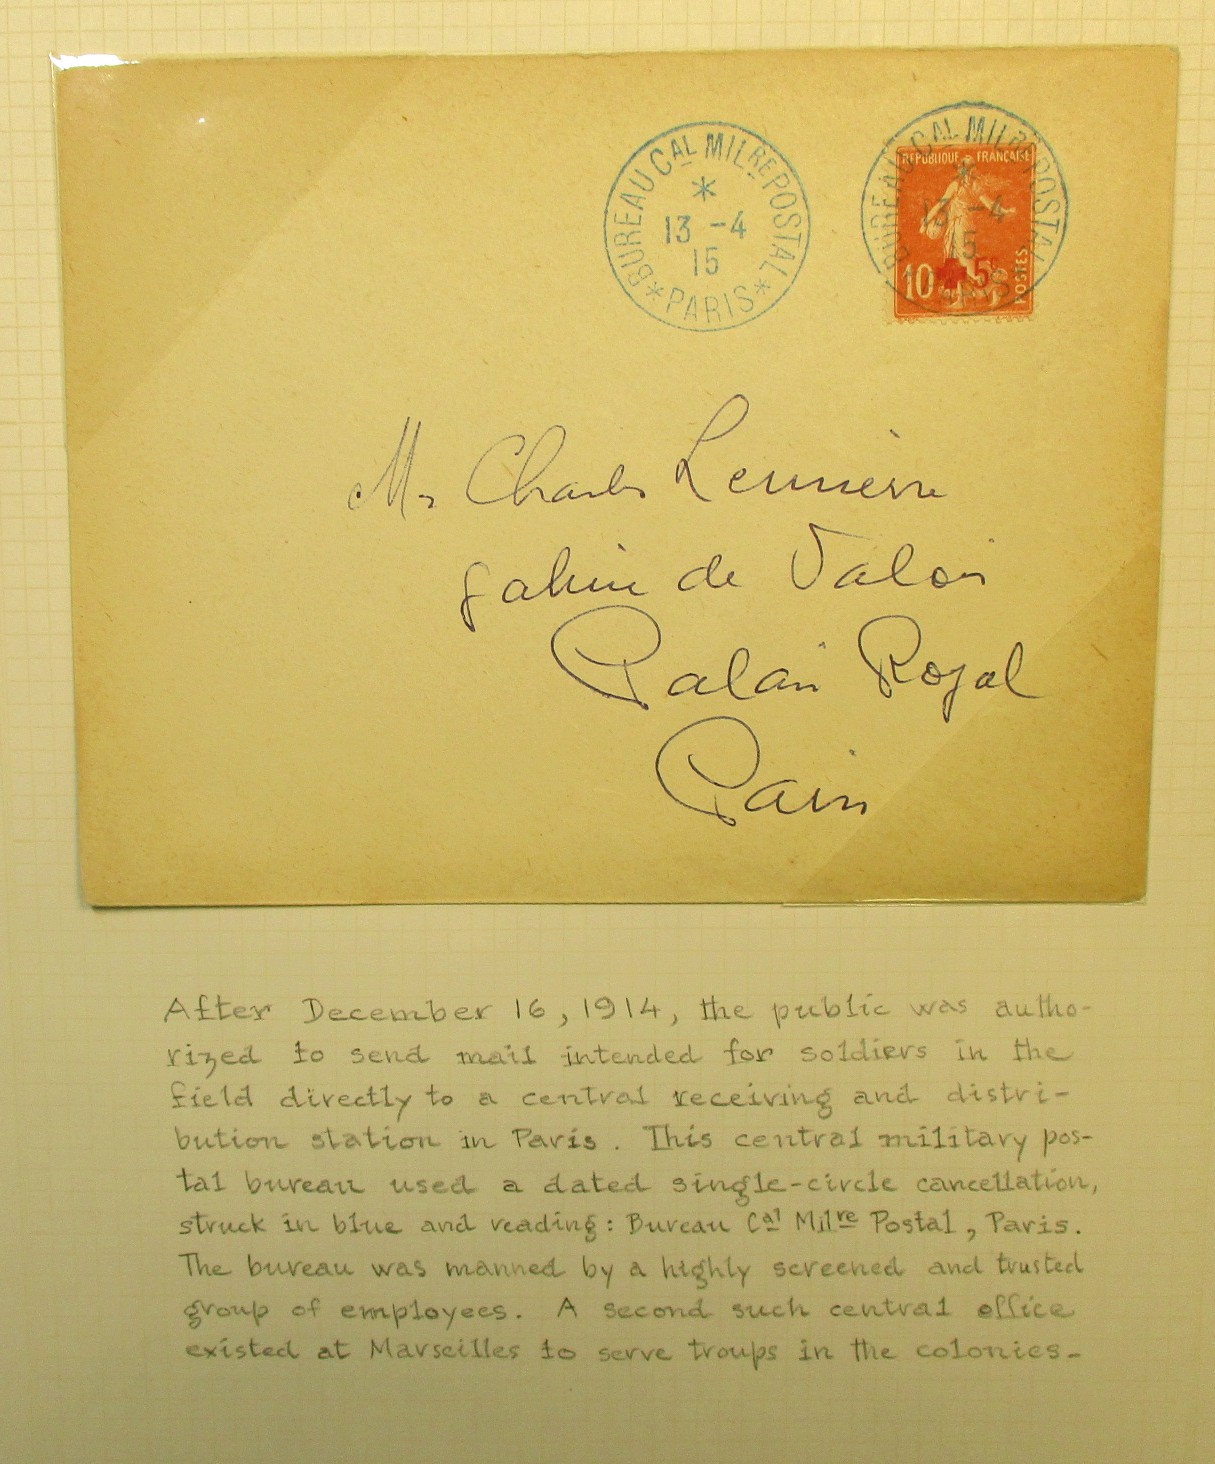 BUREAU CAL MILRE POSTAL
13 -4
15
*PARIS*
BUREAU CAL MILRE POSTAL
13 -4
15
REPUBLIQUE FRANÇAISE
10 5c
POSTES
Mr Charles Lemierre
galerie de Valois
Palais Royal
Paris
After December 16, 1914, the public was autho-
rized to send mail intended for soldiers in the
field directly to a central receiving and distri-
bution station in Paris. This central military pos-
tal bureau used a dated single-circle cancellation,
struck in blue and reading: Bureau Cal Milre Postal, Paris.
The bureau was manned by a highly screened and trusted
group of employees. A second such central office
existed at Marseilles to serve troups in the colonies-